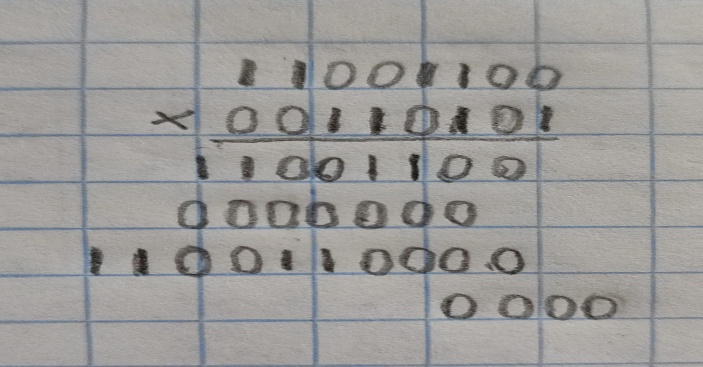 11001100
× 00110101
11001100
0000000
1100110000
0000